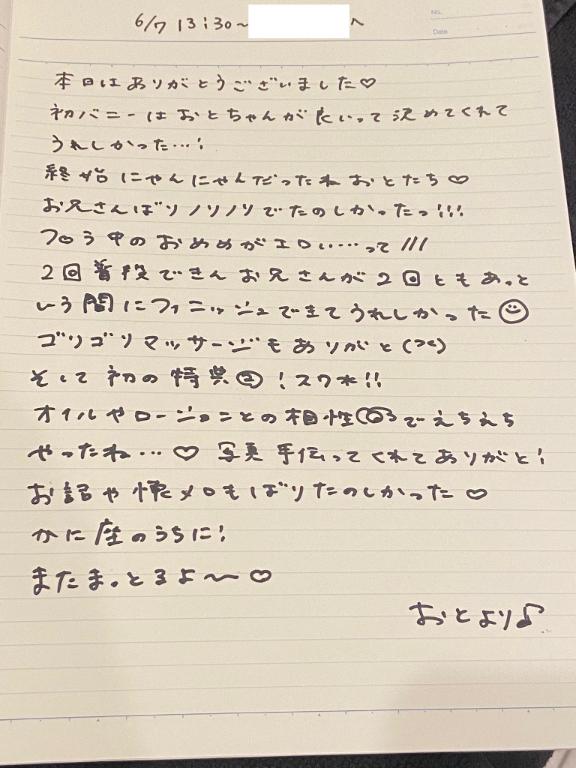 No.
Date
6/7 13:30~ へ
本日はありがとうございました♡
初バニーはおとちゃんが良いって決めてくれて
うれしかった…!
終始にゃんにゃんだったねおとたち♡
お兄さんばりノリノリでたのしかったっ!!!
フロう中のおめめがエロい…って///
2回普段できんお兄さんが2回ともあっと
いう間にフィニッシュできてうれしかった☺
ゴリゴリマッサージもありがと
そして初の特典②!スワ水!!
オイルやローションとの相性◎でえちえち
やったね…♡ 写真手伝ってくれてありがと!
お話や懐メロもばりたのしかった♡
かに座のうちに!
またまっとるよ〜♡
おとより♪